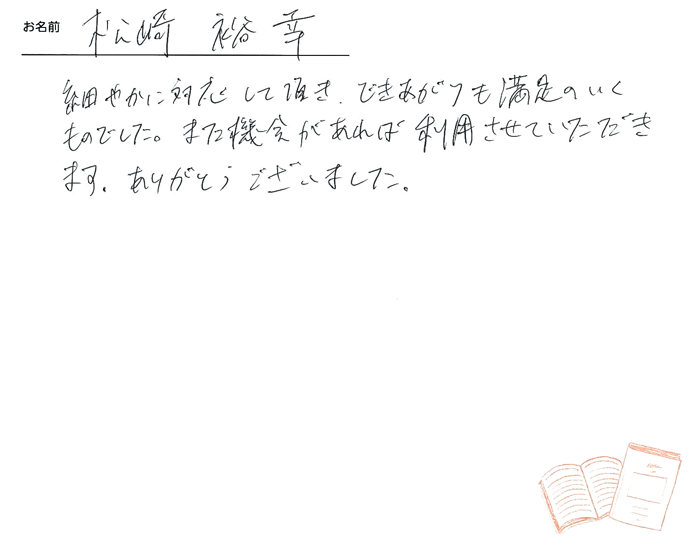 お名前 松崎 裕幸
細やかに対応して頂き、できあがりも満足のいく
ものでした。また機会があれば利用させていただき
ます。ありがとうございました。